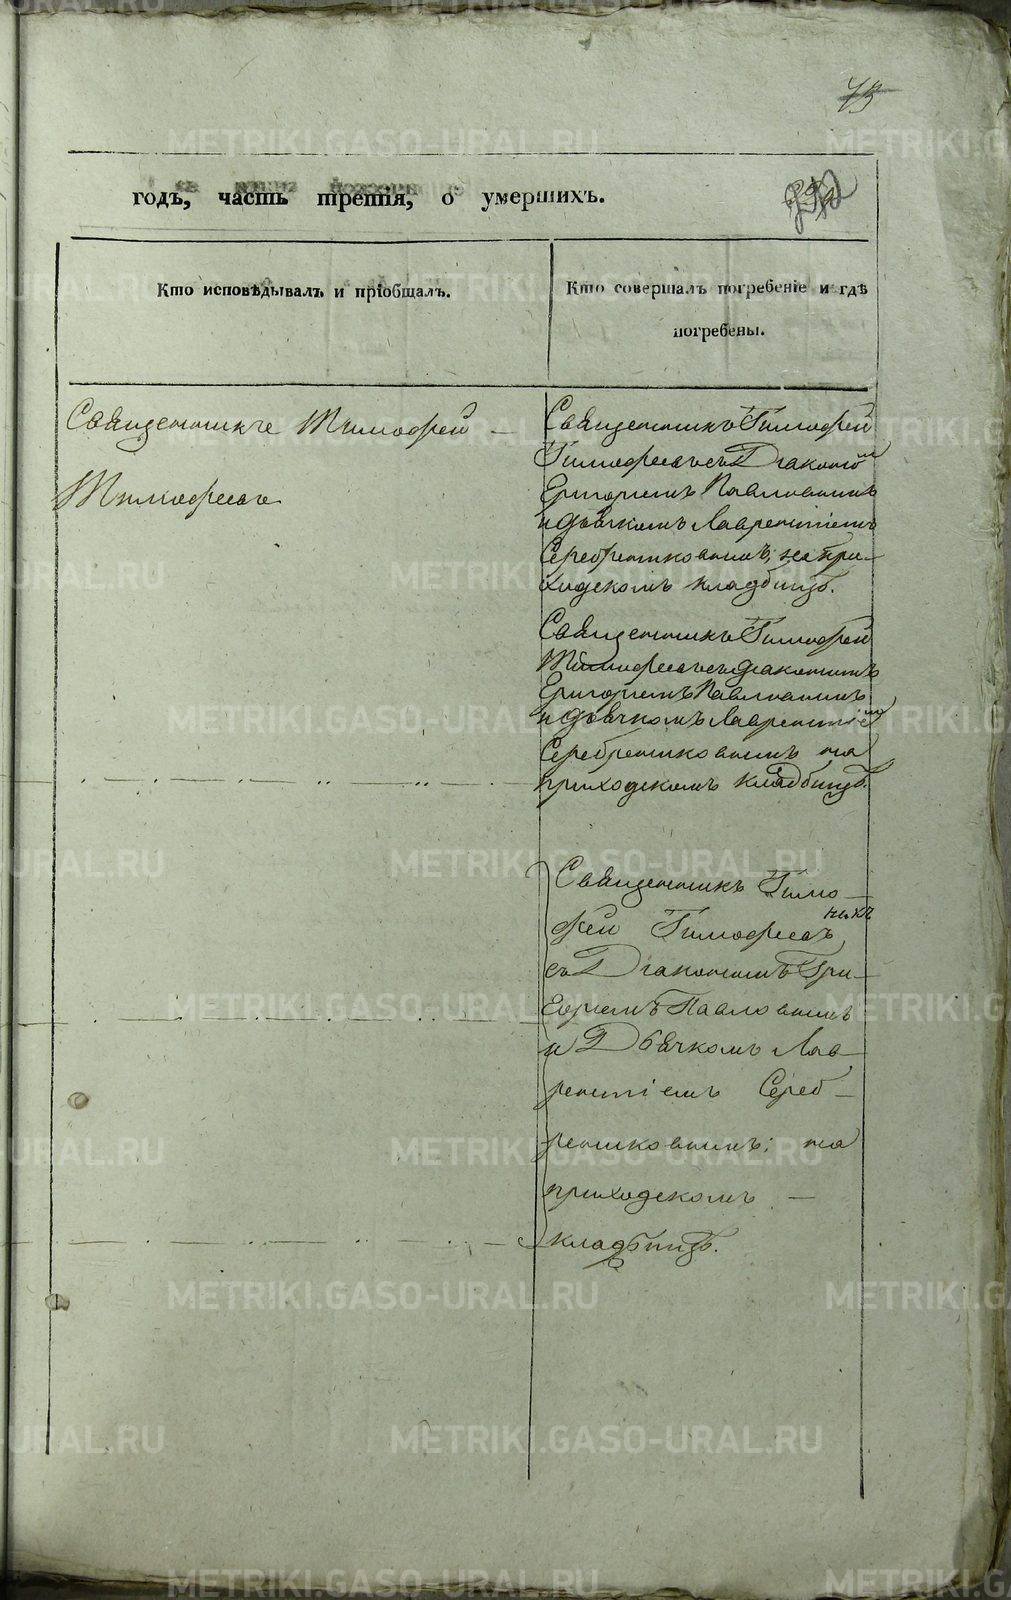 73
годъ, часть третія, о умершихъ.
Кто исповѣдывалъ и пріобщалъ.
Кто совершалъ погребеніе и гдѣ
погребены.
Священникъ Тимофей —
Тимофеевъ
Священникъ Тимофей
Тимофеевъ съ Діакономъ
Григоріемъ Павловымъ
и дьячкомъ Лаврентіемъ
Серебренниковымъ; на при-
ходскомъ кладбищѣ.
Священникъ Тимофей
Тимофеевъ съ діакономъ
Григоріемъ Павловымъ
и дьячкомъ Лаврентіемъ
Серебренниковымъ на
приходскомъ кладбищѣ.
Священникъ Тимо-
фей Тимофеевъ
съ Діакономъ Гри-
горіемъ Павловымъ
и Дьячкомъ Лав-
рентіемъ Сереб-
ренниковымъ; на
приходскомъ —
кладбищѣ.
METRIKI.GASO-URAL.RU